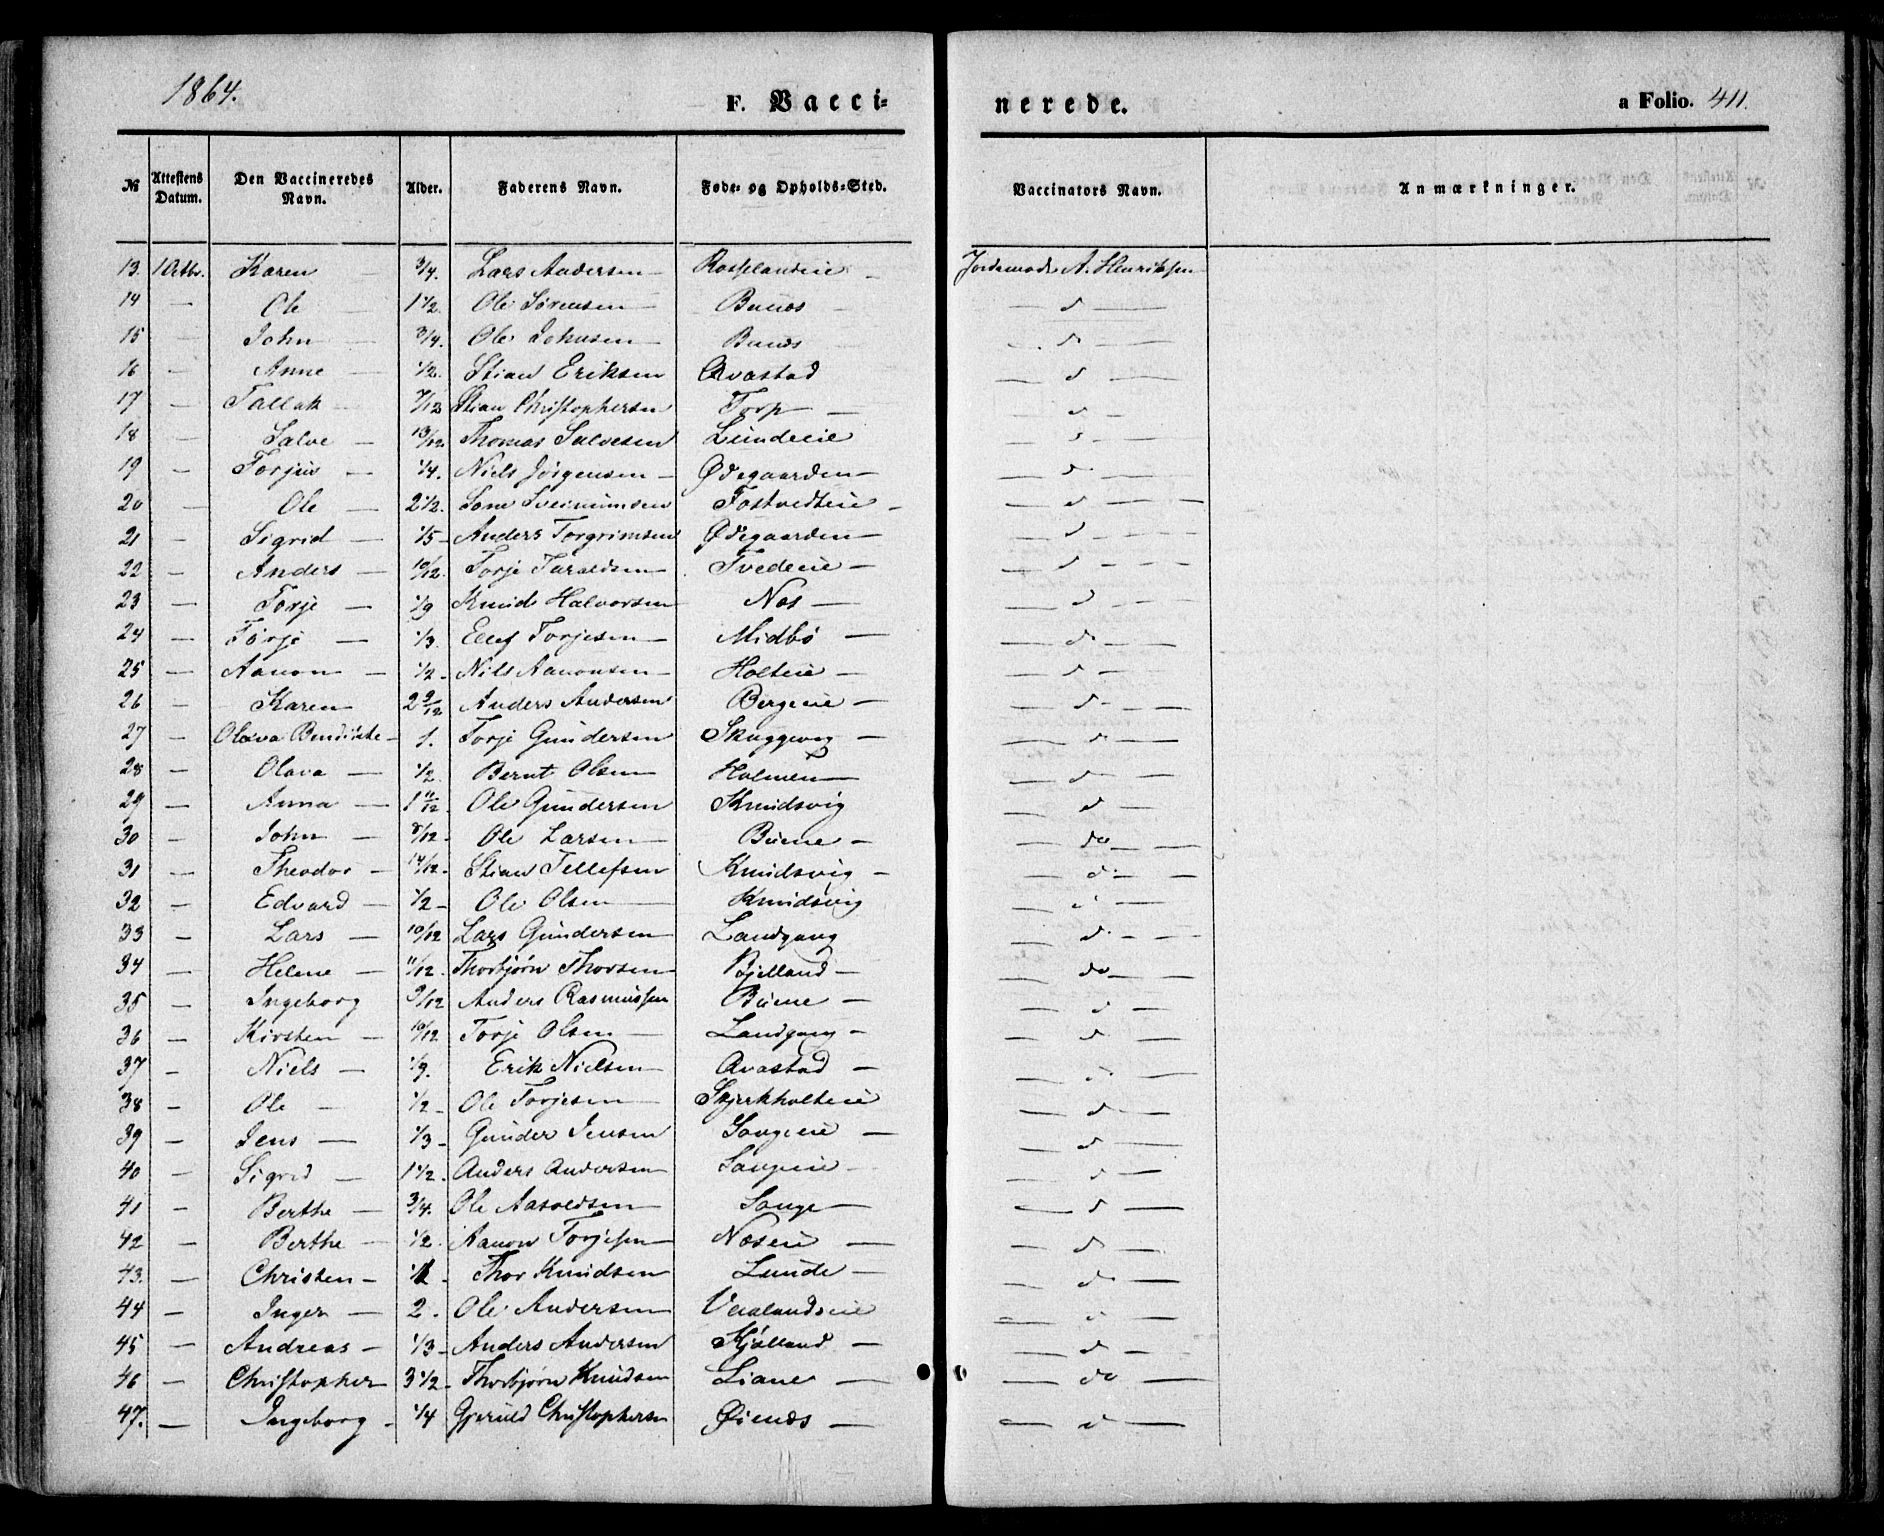 1864.
F. Vacci=
nerede.
a Folio. 411.
№ Attestens Datum. Den Vaccineredes Navn. Alder. Faderens Navn. Føde- og Opholds-Sted. Vaccinators Navn. Anmærkninger.
13. 1 Octbr. Karen — 3/4. Lars Andersen — Rosselandeie — Jordemoder A. Henriksen
14 — Ole — 1 1/2. Ole Sørensen — Buenes — d —
15 — John — 3/4. Ole Johnsen — — d —
16 — Anne — 1/2. Stian Eriksen Qvastad — d —
17 — Tallak 7/12 Stian Christophersen Torp — — d —
18 — Salve — 13/12. Thomas Salvesen Lundeeie — d —
19 — Torjus — 1/4. Niels Jörgensen — Ødegaarden — — d —
20 — Ole — 2 1/2. Sveinumsen Fostvedteie — — d —
21 — Sigrid — 1/5 — Anders Torgrimsen Ødegaarden — — d —
22 — Anders — 10/12. Torje Taraldsen — Tvedeeie — — d —
23 — Torje — 1/9 Knud Halvorsen Næs — — d —
24 — Torje — 1/3. Ellef Torjesen — Midbö — — d —
25 — Aanon — 1/2 — Nils Aanonsen — Holteie — — d —
26 — Karen 2 9/12 Anders Andersen Bergeeie — — d —
27 — Olava Bendikte — 1. Torje Gundersen Skuggevig — — d —
28 — Olava — 1/2. Bernt Olsen — Holmen — — d —
29 — Anna — 1 11/12. Ole Gundersen Knudsvig — d —
30 — John — 8/12 — Ole Larsen — Buene — — do —
31 — Theodor — 14/12. Stian Tellefsen Knudsvig — — d —
32 — Edvard — 1/2 — Ole Olsen — Knudsvig — d —
33 — Lars — 10/12 Lars Gundersen Landgang — d —
34 — Helene — 11/12. Thorbjørn Thorsen Bjelland — — do —
35 — Ingeborg 9/12 Anders Rasmussen Buene — — d —
36 — Kirsten — 10/12 Torje Olsen — Landgang — — d —
37 — Niels — 1/9. Erik Nielsen — Qvastad — — d —
38 — Ole — 1/2 — Ole Torjesen — Skjerkholteie — d —
39 — Jens — 1/3 — Gunder Jensen Songeeie — — d —
40 — Sigrid — 1 1/2. Anders Andersen Songeeie — — d —
41 — Berthe — 3/4. Ole Aasoldsen Songe — — d —
42 — Berthe — 1/2. Aanon Torjesen — Næseie — — d —
43. — Christen — Thor Knudsen Lunde — — d —
44 — Inger — 2. Ole Andersen Vaalandseie — d —
45 — Andreas — 1/3 — Anders Andersen Kjølland — — d —
46 — Christopher 3 1/2 — Thorbjørn Knudsen Liane — — do —
47. — Ingeborg — 1/4 Gjeruld Christophersen Øienæs — — d —